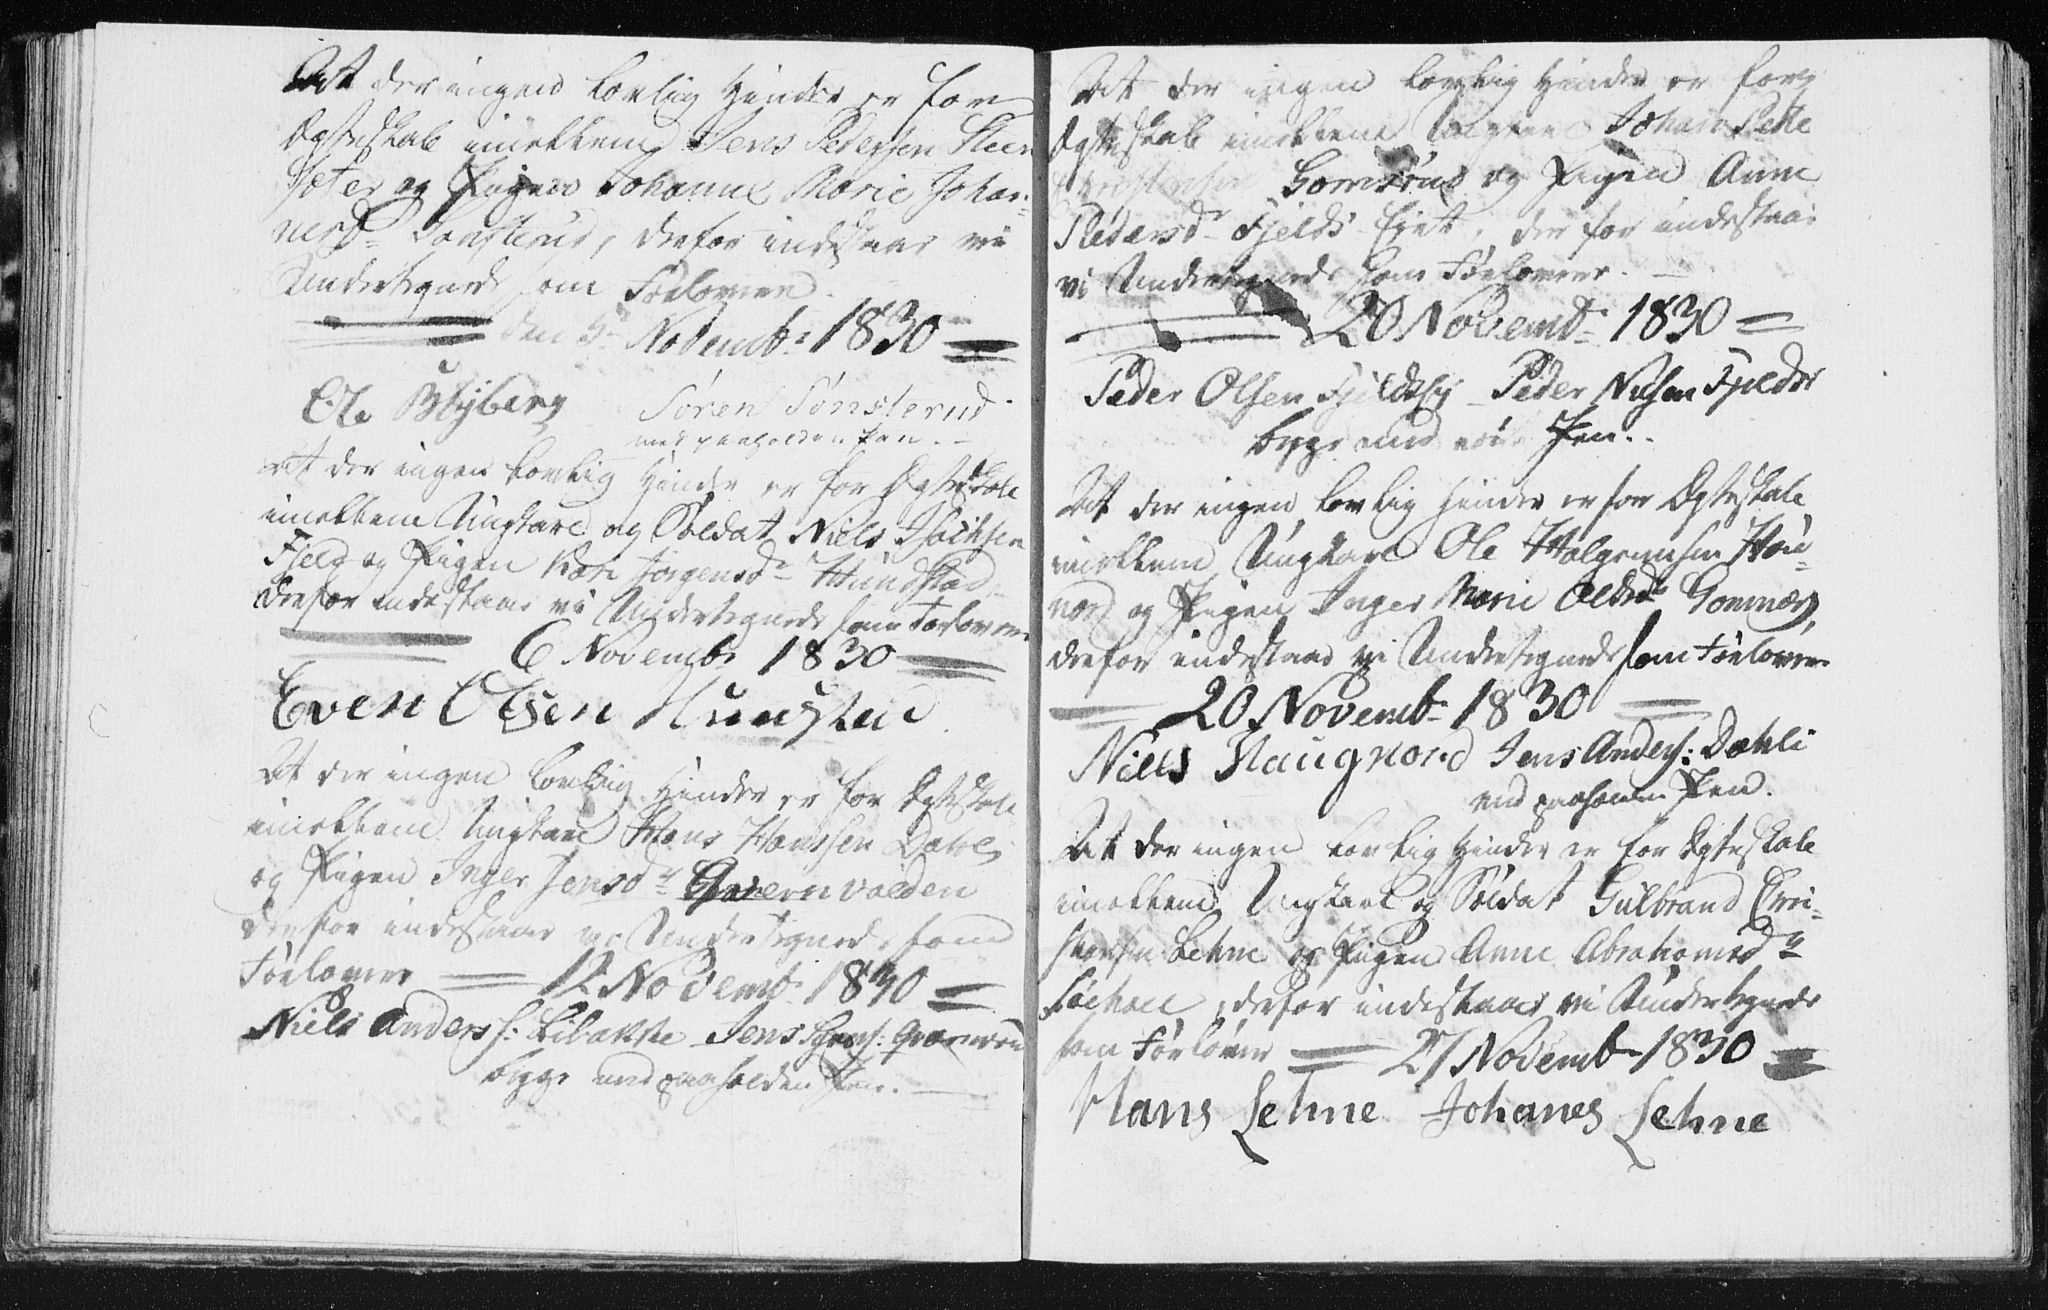 At der ingen lovlig Hinder er for
Ægteskab imellem Jens Pedersen Steen
Sæter og Pigen Johanne Marie Johan-
nesdr Sønsterud, derfor indestaar vi
Undertegnede som Forlovere
den 5te Novembr 1830
Ole Blyberg Søren Sønsterud
med paaholden Pen.
At der ingen lovlig Hinder er for Ægteskab
imellem Ungkarl og Soldat Niels Isachsen
Fjeld og Pigen Jørgensdr Hundstad
derfor indestaar vi Undertegnede som Forlovere
6 Novembr 1830
Even Olsen Hunstad
At der ingen lovlig Hinder er for Ægteskab
imellem Ungkarl Hans Hanssen Dahl
og Pigen Inger Jensdr Qværnvolden
derfor indestaar vi Undertegnede som
Forlovere 12 Novembr 1830
Niels Anders S: Libakke Jens
begge med paaholden Pen.
At der ingen lovlig Hinder er for
Ægteskab imellem Ungkarl Johan
Gomsrud og Pigen Anne
Pedersdr Fjelds Eiet, der for indestaar
vi Undertegnede som Forlovere.
20 Novembr 1830
Peder Olsen Peder Nilsen Fjelds
begge med Pen.
At der ingen lovlig Hinder er for Ægteskab
imellem Ungkarl Ole Halgrimsen Hou-
nord og Pigen Inger Marie Olsdr Gomnæs,
derfor indestaar vi Undertegnede som Forlovere
20 Novembr 1830
Niels Haugnord Jens Anders: Dæhli
med paaholden Pen.
At der ingen lovlig Hinder er for Ægteskab
imellem Ungkarl og Soldat Gulbrand Chri-
stensen Lehne og Pigen Anne Abrahamsdr
derfor indestaar vi Undertegnede
som Forlovere 27 Novembr 1830
Hans Lehne Johanes Lehne